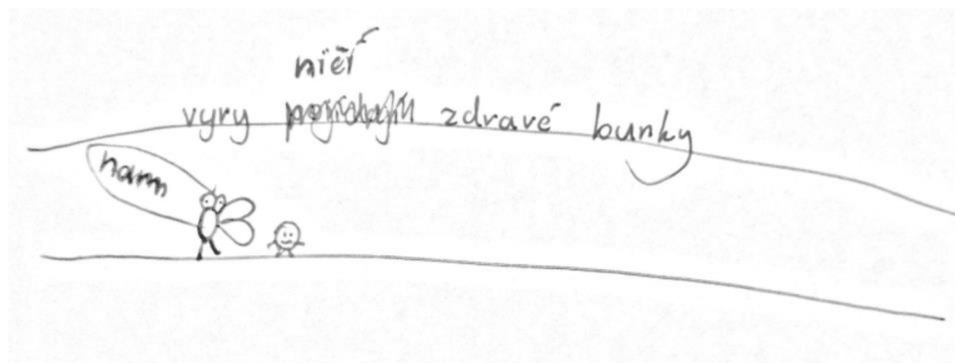 ničí
vyry zdravé bunky